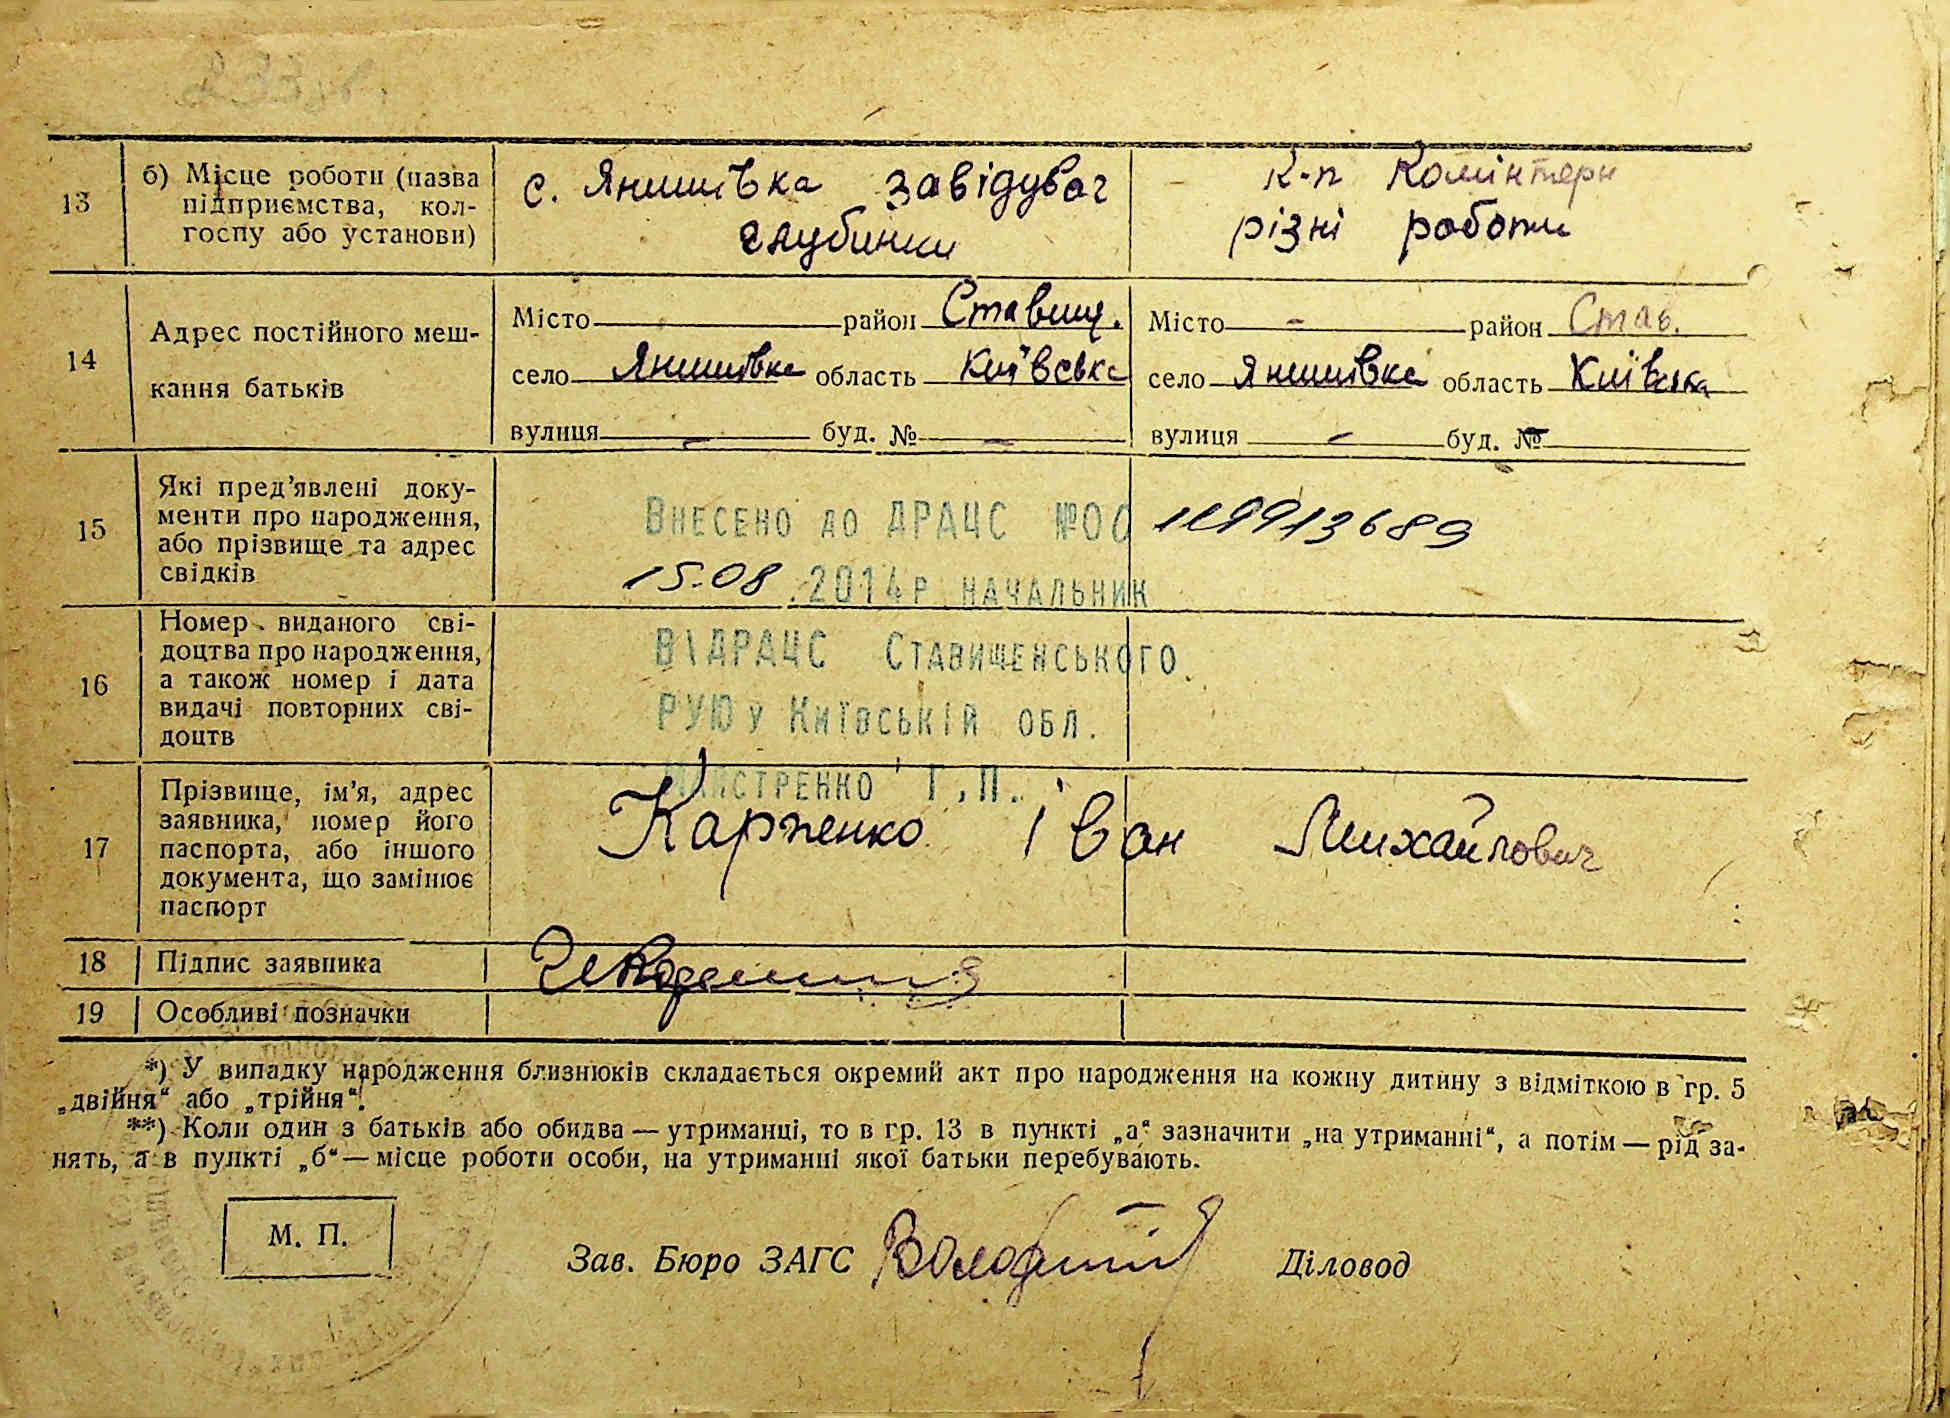 13
б) Місце роботи (назва
підприємства, кол-
госпу або установи)
с. Янишівка завідувач
глубинки
к-п Комінтерн
різні роботи
14
Адрес постійного меш-
кання батьків
Місто район Ставищ.
село Янишівка область Київська
вулиця - буд. № -
Місто - район Став.
село Янишівка область Київська
вулиця - буд. №
15
Які пред'явлені доку-
менти про народження,
або прізвище та адрес
свідків
Внесено до ДРАЦС №00 119913689
15.08.2014р начальник
16
Номер виданого сві-
доцтва про народження,
а також номер і дата
видачі повторних сві-
доцтв
ВДРАЦС Ставищенського
РУЮ у Київській обл.
Майстренко Г.П.
17
Прізвище, ім'я, адрес
заявника, номер його
паспорта, або іншого
документа, що замінює
паспорт
Карпенко Іван Михайлович
18
Підпис заявника
19
Особливі позначки
*) У випадку народження близнюків складається окремий акт про народження на кожну дитину з відміткою в гр. 5
„двійня“ або „трійня“.
**) Коли один з батьків або обидва — утриманці, то в гр. 13 в пункті „а“ зазначити „на утриманні“, а потім — рід за-
нять, а в пункті „б“ — місце роботи особи, на утриманні якої батьки перебувають.
М. П.
Зав. Бюро ЗАГС
Діловод